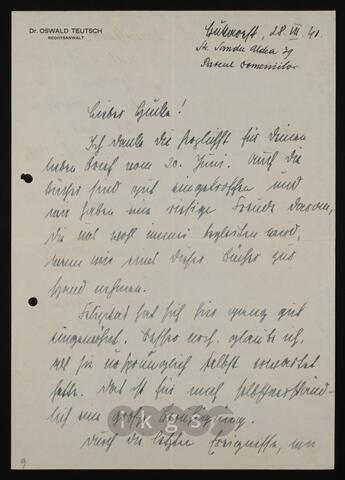 Dr. OSWALD TEUTSCH
RECHTSANWALT
Bukarest, 28. VII. 40.
Str. Sandu Aldea 39
Parcul Domeniilor
Lieber
Ich danke Dir herzlichst für Deinen
lieben Brief vom 20. Juni. Auch die
Bücher sind gut eingetroffen und
wir haben eine riesige Freude daran,
die uns wohl immer begleiten wird,
wenn wir eines dieser Bücher zur
Hand nehmen.
Felizitas hat sich hier ganz gut
eingewöhnt. Besser noch, glaube ich,
als sie ursprünglich selbst erwartet
hatte. Das ist für mich selbstverständ-
lich eine große Beruhigung.
Durch die letzten Ereignisse, von
ikgs